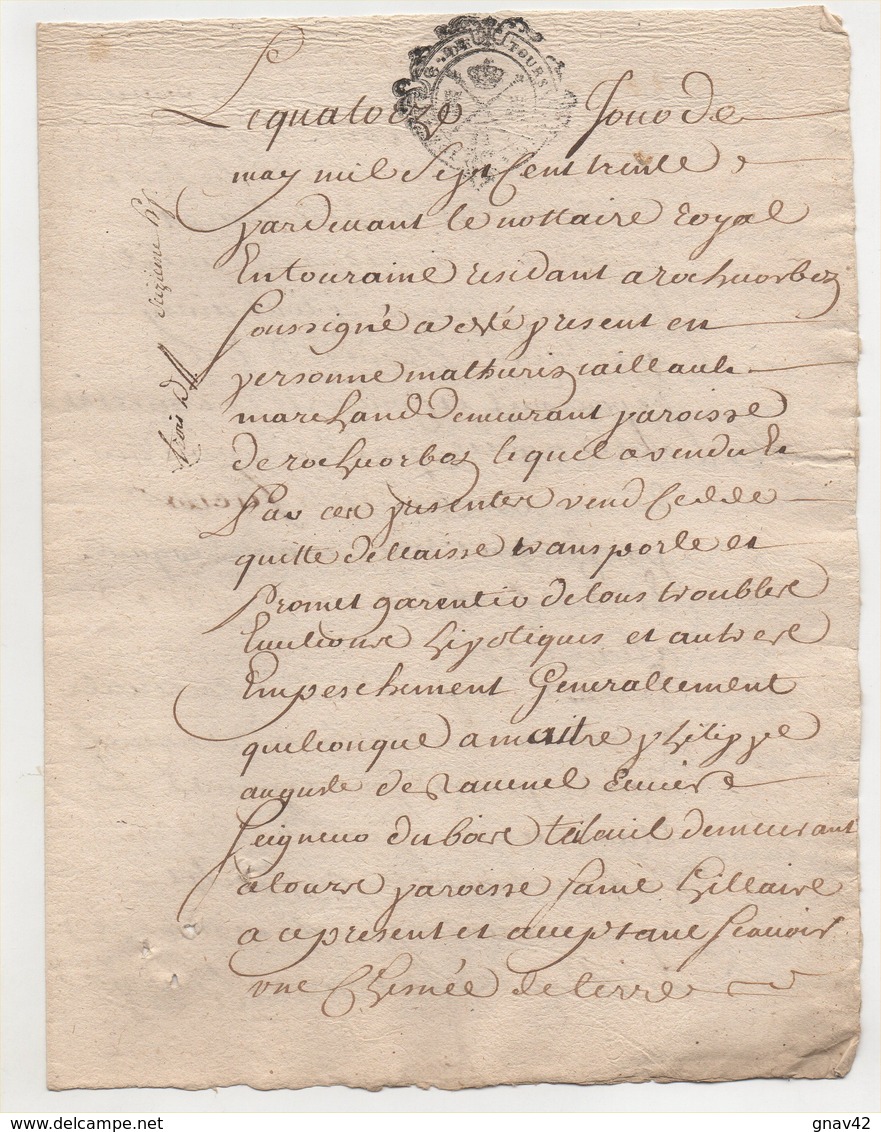 Lequatorze Jour de
may mil sept Cent trente
pardevant le nottaire royal
En touraine residant a rochecorbon
Soussigné a esté present en
personne mathurin caillault
marchand demeurant paroisse
de rochecorbon lequel a vendu Et
Par ces presentes vend Cedde
quitte dellaisse transporte et
Promet garentir de tous troubles
Evictions hipotiques et autres
Empeschement Generallement
quelconque a maitre philippe
auguste de Ravenel Ecuier
Seigneur du bois demeurant
a tours paroisse saint hillaire
a ce present et acceptant scavoir
une Chesnée de terre
TOURS
trois d
delcampe.net
gnav42